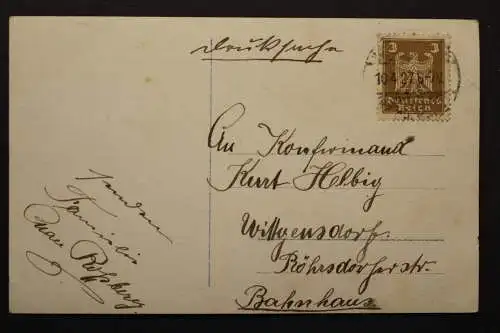 Drucksache
3 3
10.4.27.
Deutsches
Reich
An Konfirmand
Kurt Helbig
Wittgensdorf.
Röhrsdorferstr.
Bahnhaus
senden
Familie
Roßberg.